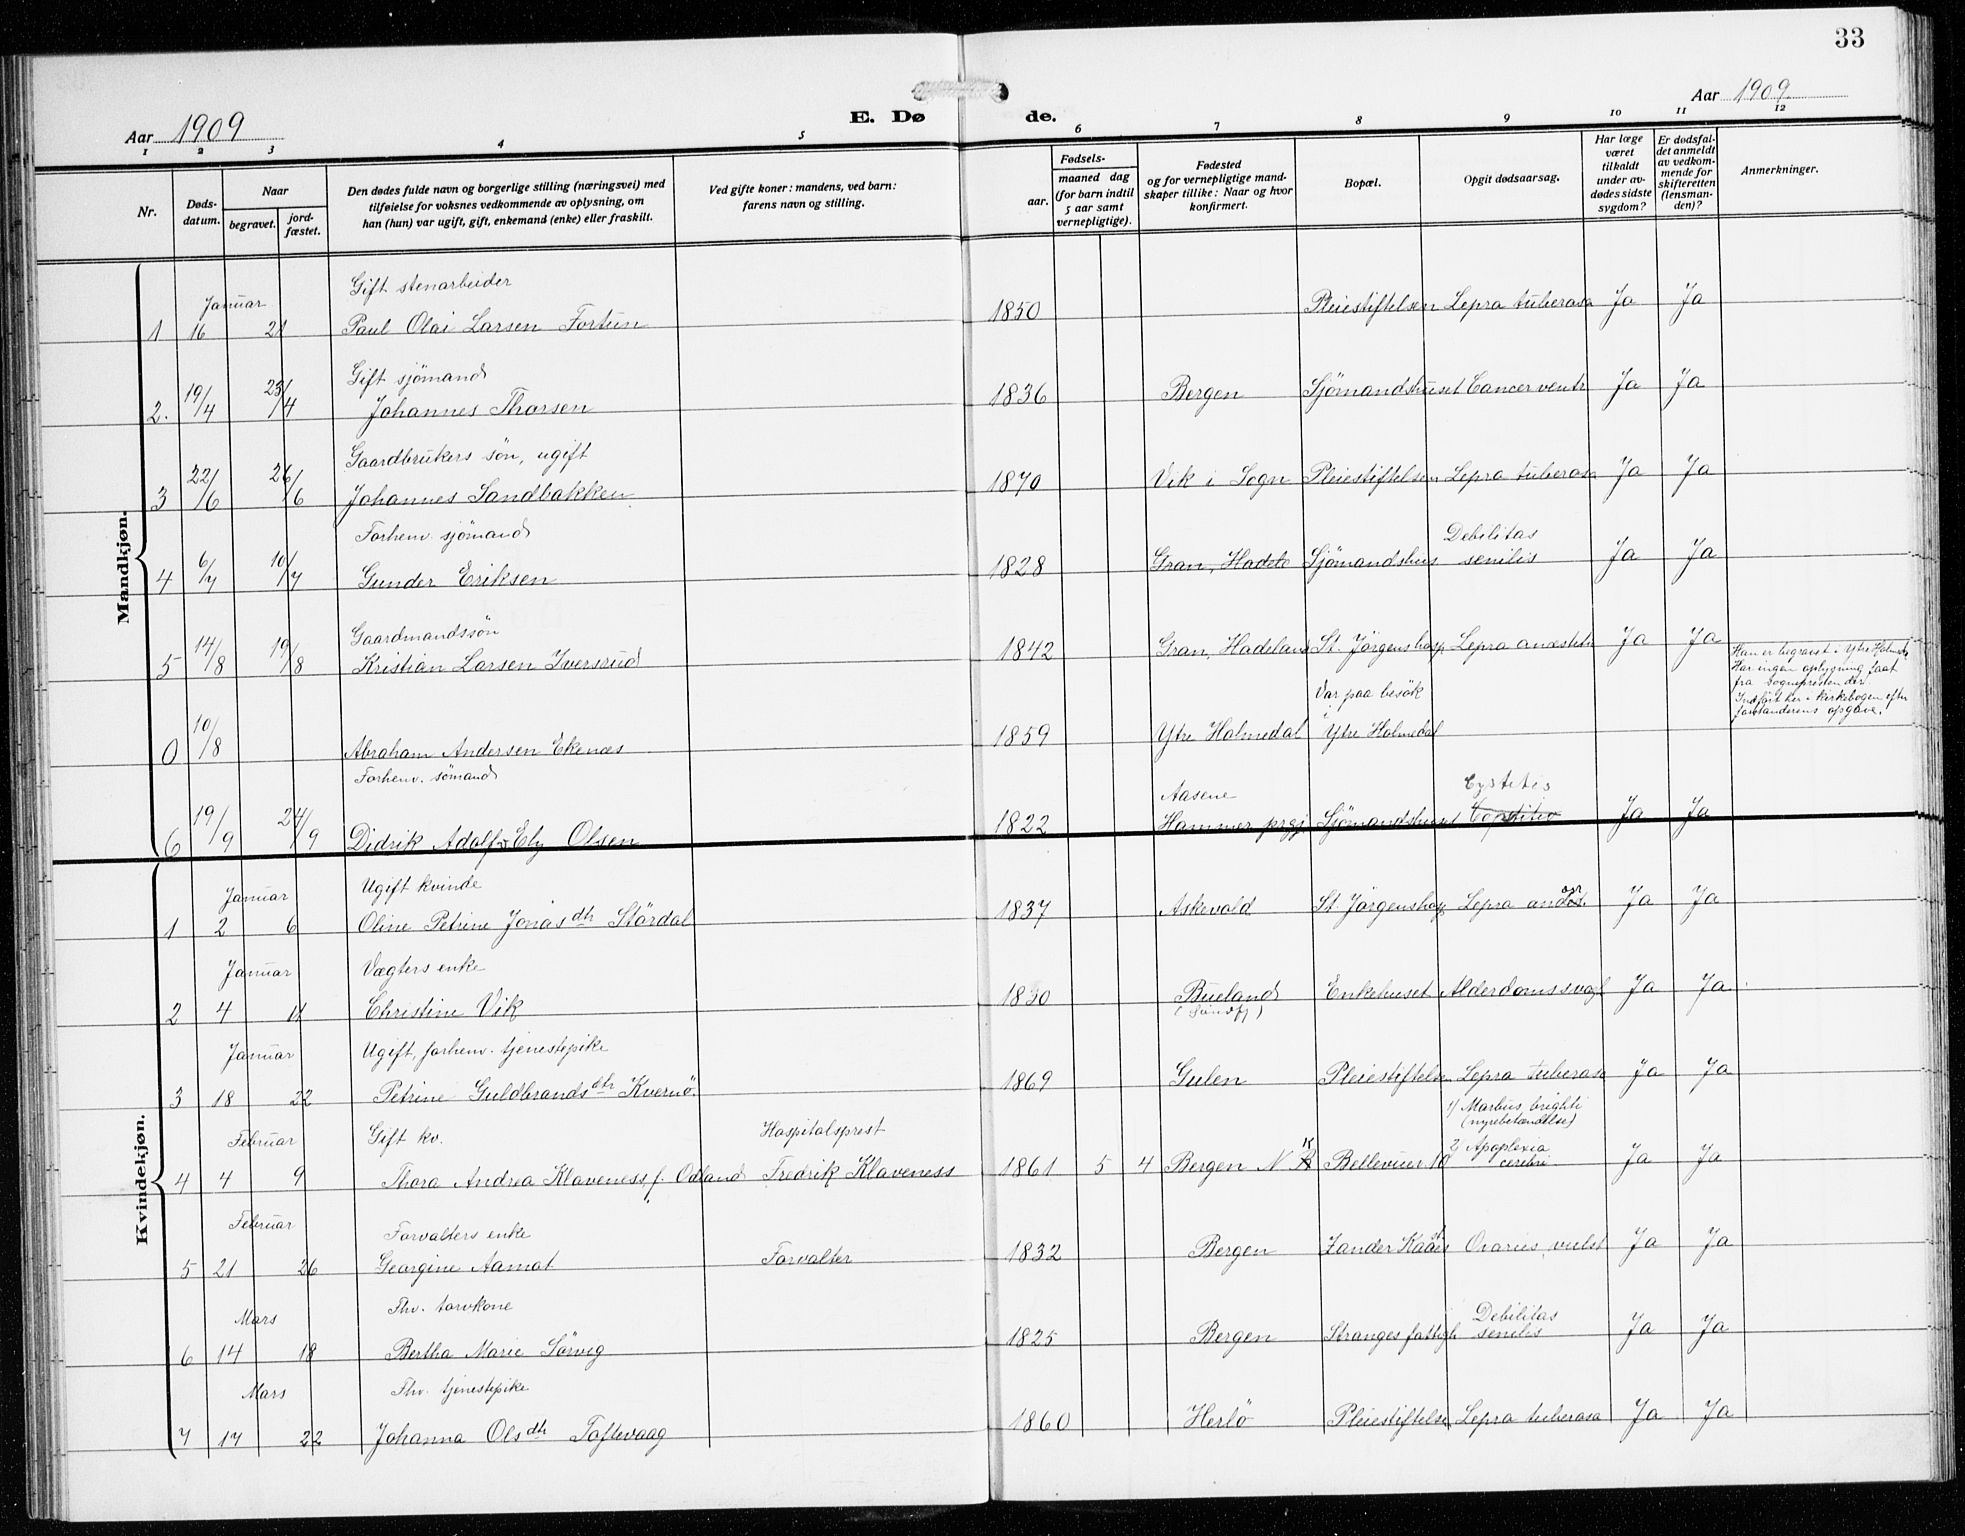 33
Aar 1909
E. Døde.
Aar 1909
1 2 3 4 5 6 7 8 9 10 11 12
Nr.
Dødsdatum.
Naar
begravet.
jordfæstet.
Den dødes fulde navn og borgerlige stilling (næringsvei) med
tilføielse for voksnes vedkommende av oplysning, om
han (hun) var ugift, gift, enkemand (enke) eller fraskilt.
Ved gifte koner: mandens, ved barn:
farens navn og stilling.
Fødsels-
aar.
maaned dag
(for barn indtil
5 aar samt
vernepligtige).
Fødested
og for vernepligtige mandskaper tillike: Naar og hvor
konfirmert.
Bopæl.
Opgit dødsaarsag.
Har læge
været
tilkaldt
under avdødes sidste
sygdom?
Er dødsfaldet anmeldt
av vedkommende for
skifteretten
(lensmanden)?
Anmerkninger.
Mandkjøn.
Januar Gift stenarbeider
1 16 21 Paul Olai Larsen Fortun 1850 Pleiestiftelsen Lepra tuberosa Ja Ja
Gift sjömand
2. 19/4 23/4 Johannes Thorsen 1836 Bergen Sjömandshuset Cancer ventr Ja Ja
Gaardbrukers sön, ugift
3 22/6 26/6 Johannes Sandbakken 1870 Vik i Sogn Pleiestiftelsen Lepra tuberosa Ja Ja
Forhenv. sjömand Debilitas
4 6/7 10/7 Gunder Eriksen 1828 Gran, Hadel Sjömandshus senilis Ja Ja
Gaardmandssön
5 14/8 19/8 Kristian Larsen Iversrud 1842 Gran, Hadeland St. Jörgenshosp Lepra anæsteti Ja Ja
Han er begravet i Ytre Holmed.
Har ingen oplysning faat
fra sognepresten der
Indfört her i kirkebogen efter
forstanderens opgave.
Var paa besök
0 10/8 Abraham Andersen Ekenæs 1859 Ytre Holmedal i Ytre Holmedal
Forhenv. sömand Aasene Cystitis
6 19/9 24/9 Didrik Adolf Ely Olsen 1822 Hammer prgj Sjömandshuset Ja Ja
Kvindekjøn.
Januar Ugift kvinde
1 2 6 Oline Petrine Jonasdtr Stördal 1837 Askevold St Jörgenshosp Lepra Ja Ja
Januar Vægters enke
2 4 11 Christine Vik 1830 Bueland (Söndfj) Enkehuset Alderdomssvagh Ja Ja
Januar Ugift, forhenv. tjenestepike
3 18 22 Petrine Guldbrandsdtr Kvernö. 1869 Gulen Pleiestiftelsen Lepra tuberosa Ja Ja
Februar Gift kv. Hospitalsprest 1) Morbus brighti (nyrebetændelse)
4 4 9 Thora Andrea Klaveness, f. Odland Fredrik Klaveness 1861 5 4 Bergen N K Bellevuer 10 2) Apoplexia cerebri Ja Ja
Februar Forvalters enke
5 21 26 Georgine Aamot Forvalter 1832 Bergen Zander Kaaes Ovaries vulst Ja Ja
Mars Fhv. torvkone Debilitas
6 14 18 Bertha Marie Sörvig 1825 Bergen Stranges fattigh senilis Ja Ja
Mars Fhv. tjenestepike
7 17 22 Johanna Olsdtr Toftevaag 1860 Herlö Pleiestiftelse Lepra tuberosa Ja Ja